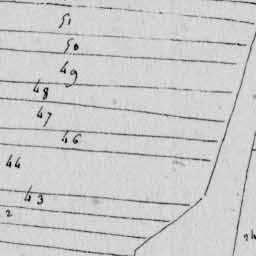 51
50
49
48
47
46
44
43
2